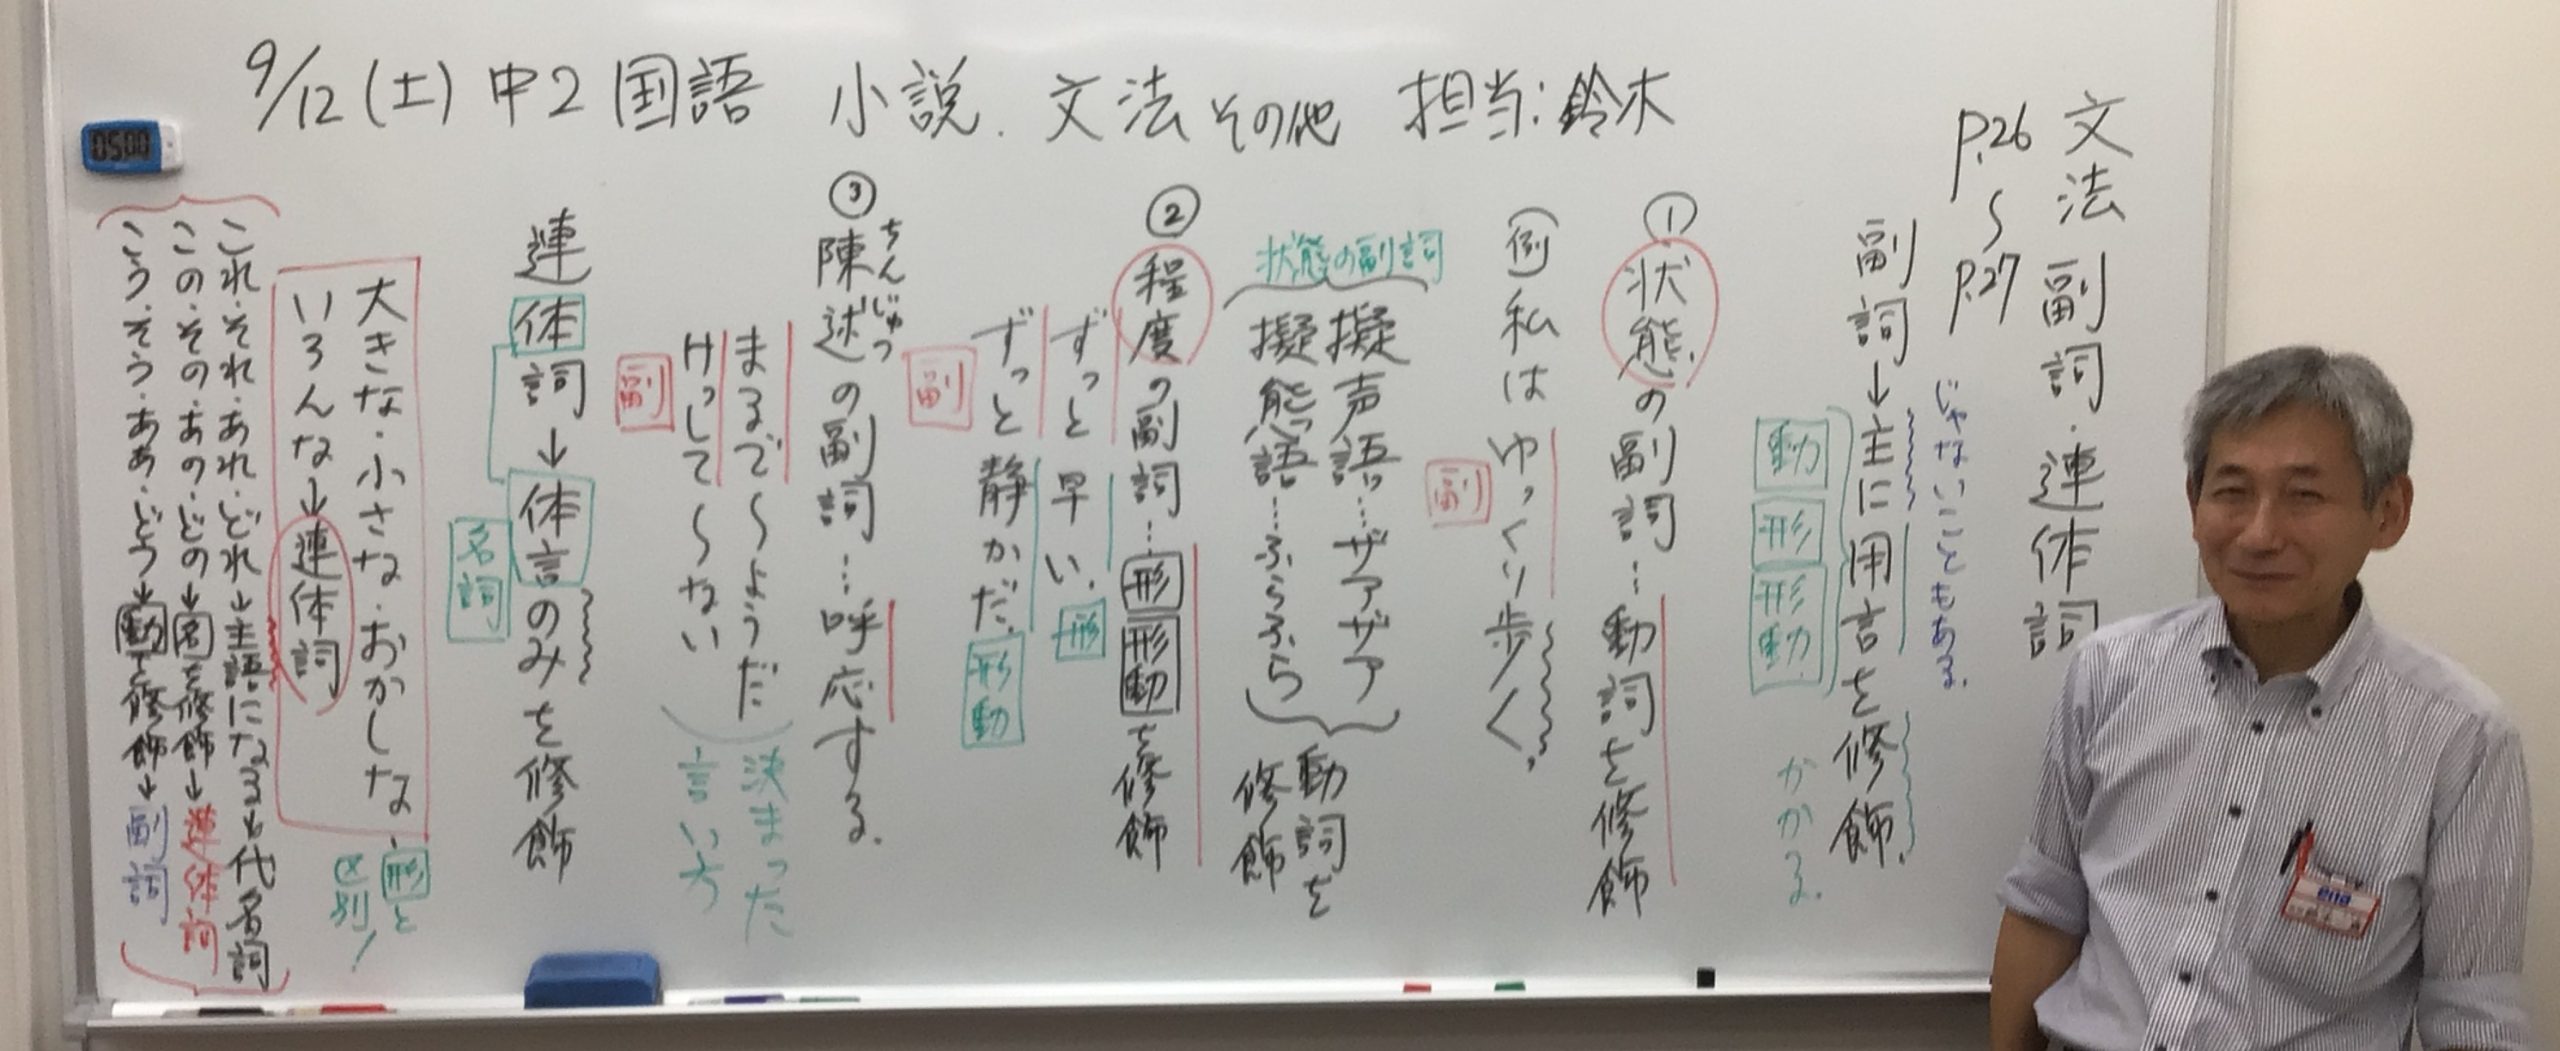 9/12(土) 中2 国語 小説. 文法 その他 担当:鈴木
文法 副詞・連体詞
P.26〜P.27
じゃないこともある.
副詞→主に用言を修飾.
かかる.
動
形
形動
①状態の副詞…動詞を修飾
(例)私はゆっくり歩く。
副
状態の副詞
擬声語…ザアザア
擬態語…ふらふら
動詞を修飾
②程度の副詞…形 形動を修飾
ずっと早い. 形
ずっと静かだ. 形動
副
ちんじゅつ
③陳述の副詞…呼応する.
まるで〜ようだ
けっして〜ない
副
決まった言い方
連体詞→体言のみを修飾
名詞
大きな・小さな・おかしな・
いろんな→連体詞
形と区別!
これ・それ・あれ・どれ→主語になる→代名詞
この・その・あの・どの→名を修飾→連体詞
こう・そう・ああ・どう→動を修飾→副詞
05:00
ena